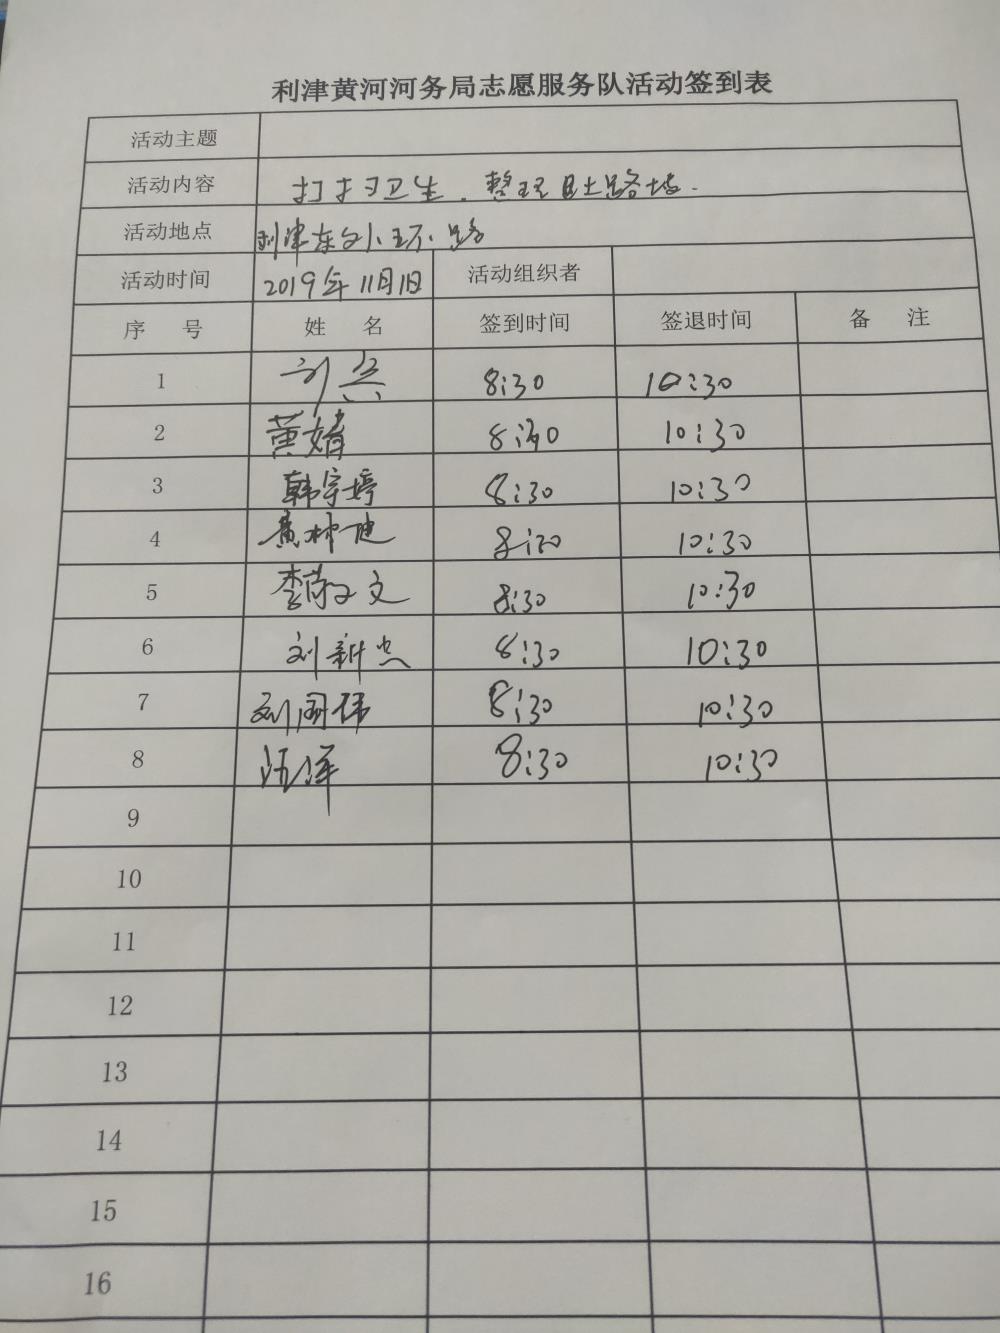 利津黄河河务局志愿服务队活动签到表
活动主题
活动内容 打扫卫生.整理
活动地点 利津东外环路
活动时间 2019年11月1日 活动组织者
序 号 姓 名 签到时间 签退时间 备 注
1 刘兵 8:30 10:30
2 黄婧 8:30 10:30
3 韩宇婷 8:30 10:30
4 黄林 8:30 10:30
5 李 文 8:30 10:30
6 刘新杰 8:30 10:30
7 刘国伟 8:30 10:30
8 8:30 10:30
9
10
11
12
13
14
15
16